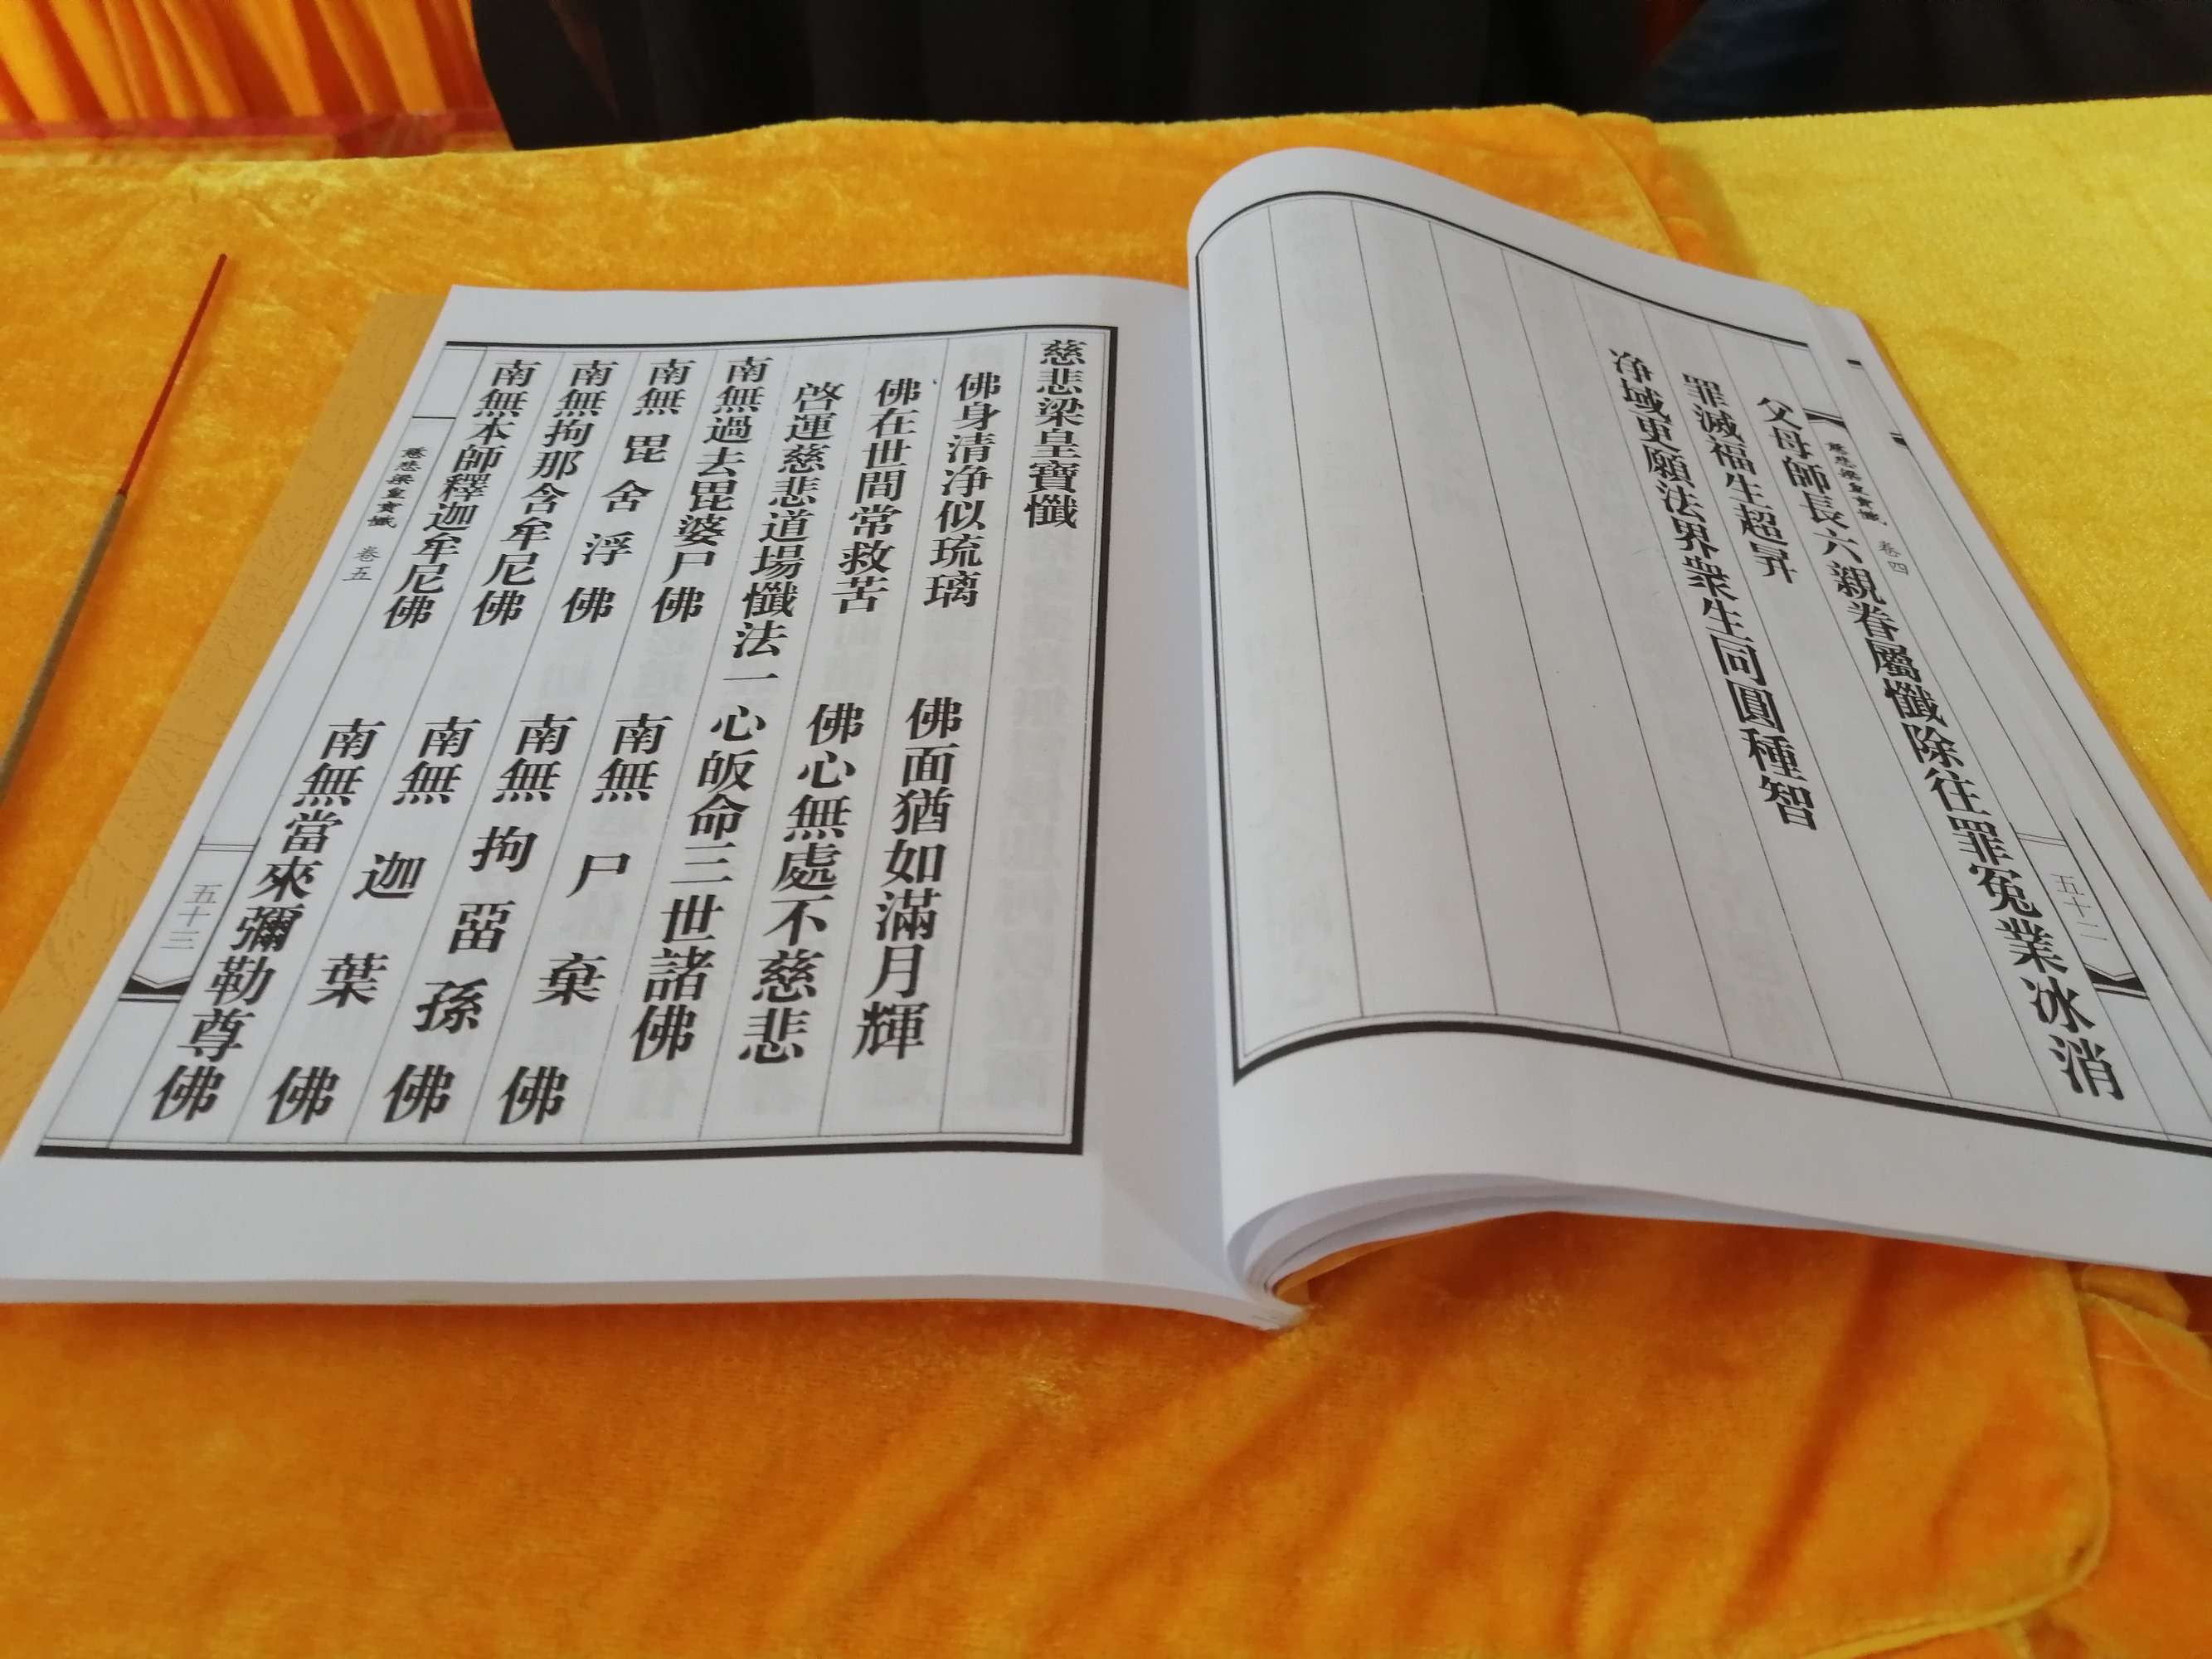 慈悲梁皇寶懺 卷四
五十二
父母師長六親眷屬懺除往罪冤業冰消
罪滅福生超昇
净域更願法界衆生同圓種智
慈悲梁皇寶懺
佛身清净似琉璃 佛面猶如滿月輝
佛在世間常救苦 佛心無處不慈悲
啓運慈悲道場懺法一心皈命三世諸佛
南無過去毘婆尸佛 南無尸棄佛
南無毘舍浮佛 南無拘畱孫佛
南無拘那含牟尼佛 南無迦葉佛
南無本師釋迦牟尼佛 南無當來彌勒尊佛
慈悲梁皇寶懺 卷五
五十三